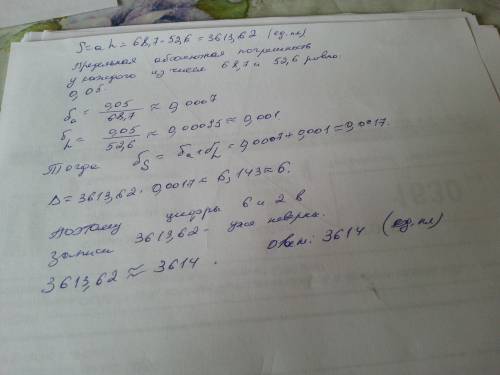 S = a h = 68,7 · 52,6 = 3613,62 (ед.пл)
Предельная абсолютная погрешность
у каждого из чисел 68,7 и 52,6 равна
0,05.
δa = 0,05/68,7 ≈ 0,0007
δh = 0,05/52,6 ≈ 0,00095 ≈ 0,001.
Тогда δS = δa + δh = 0,0007 + 0,001 = 0,0017.
Δ = 3613,62 · 0,0017 = 6,143 ≈ 6.
Поэтому цифры 6 и 2 в
записи 3613,62 - уже неверны.
3613,62 ≈ 3614. Ответ: 3614 (ед.пл)